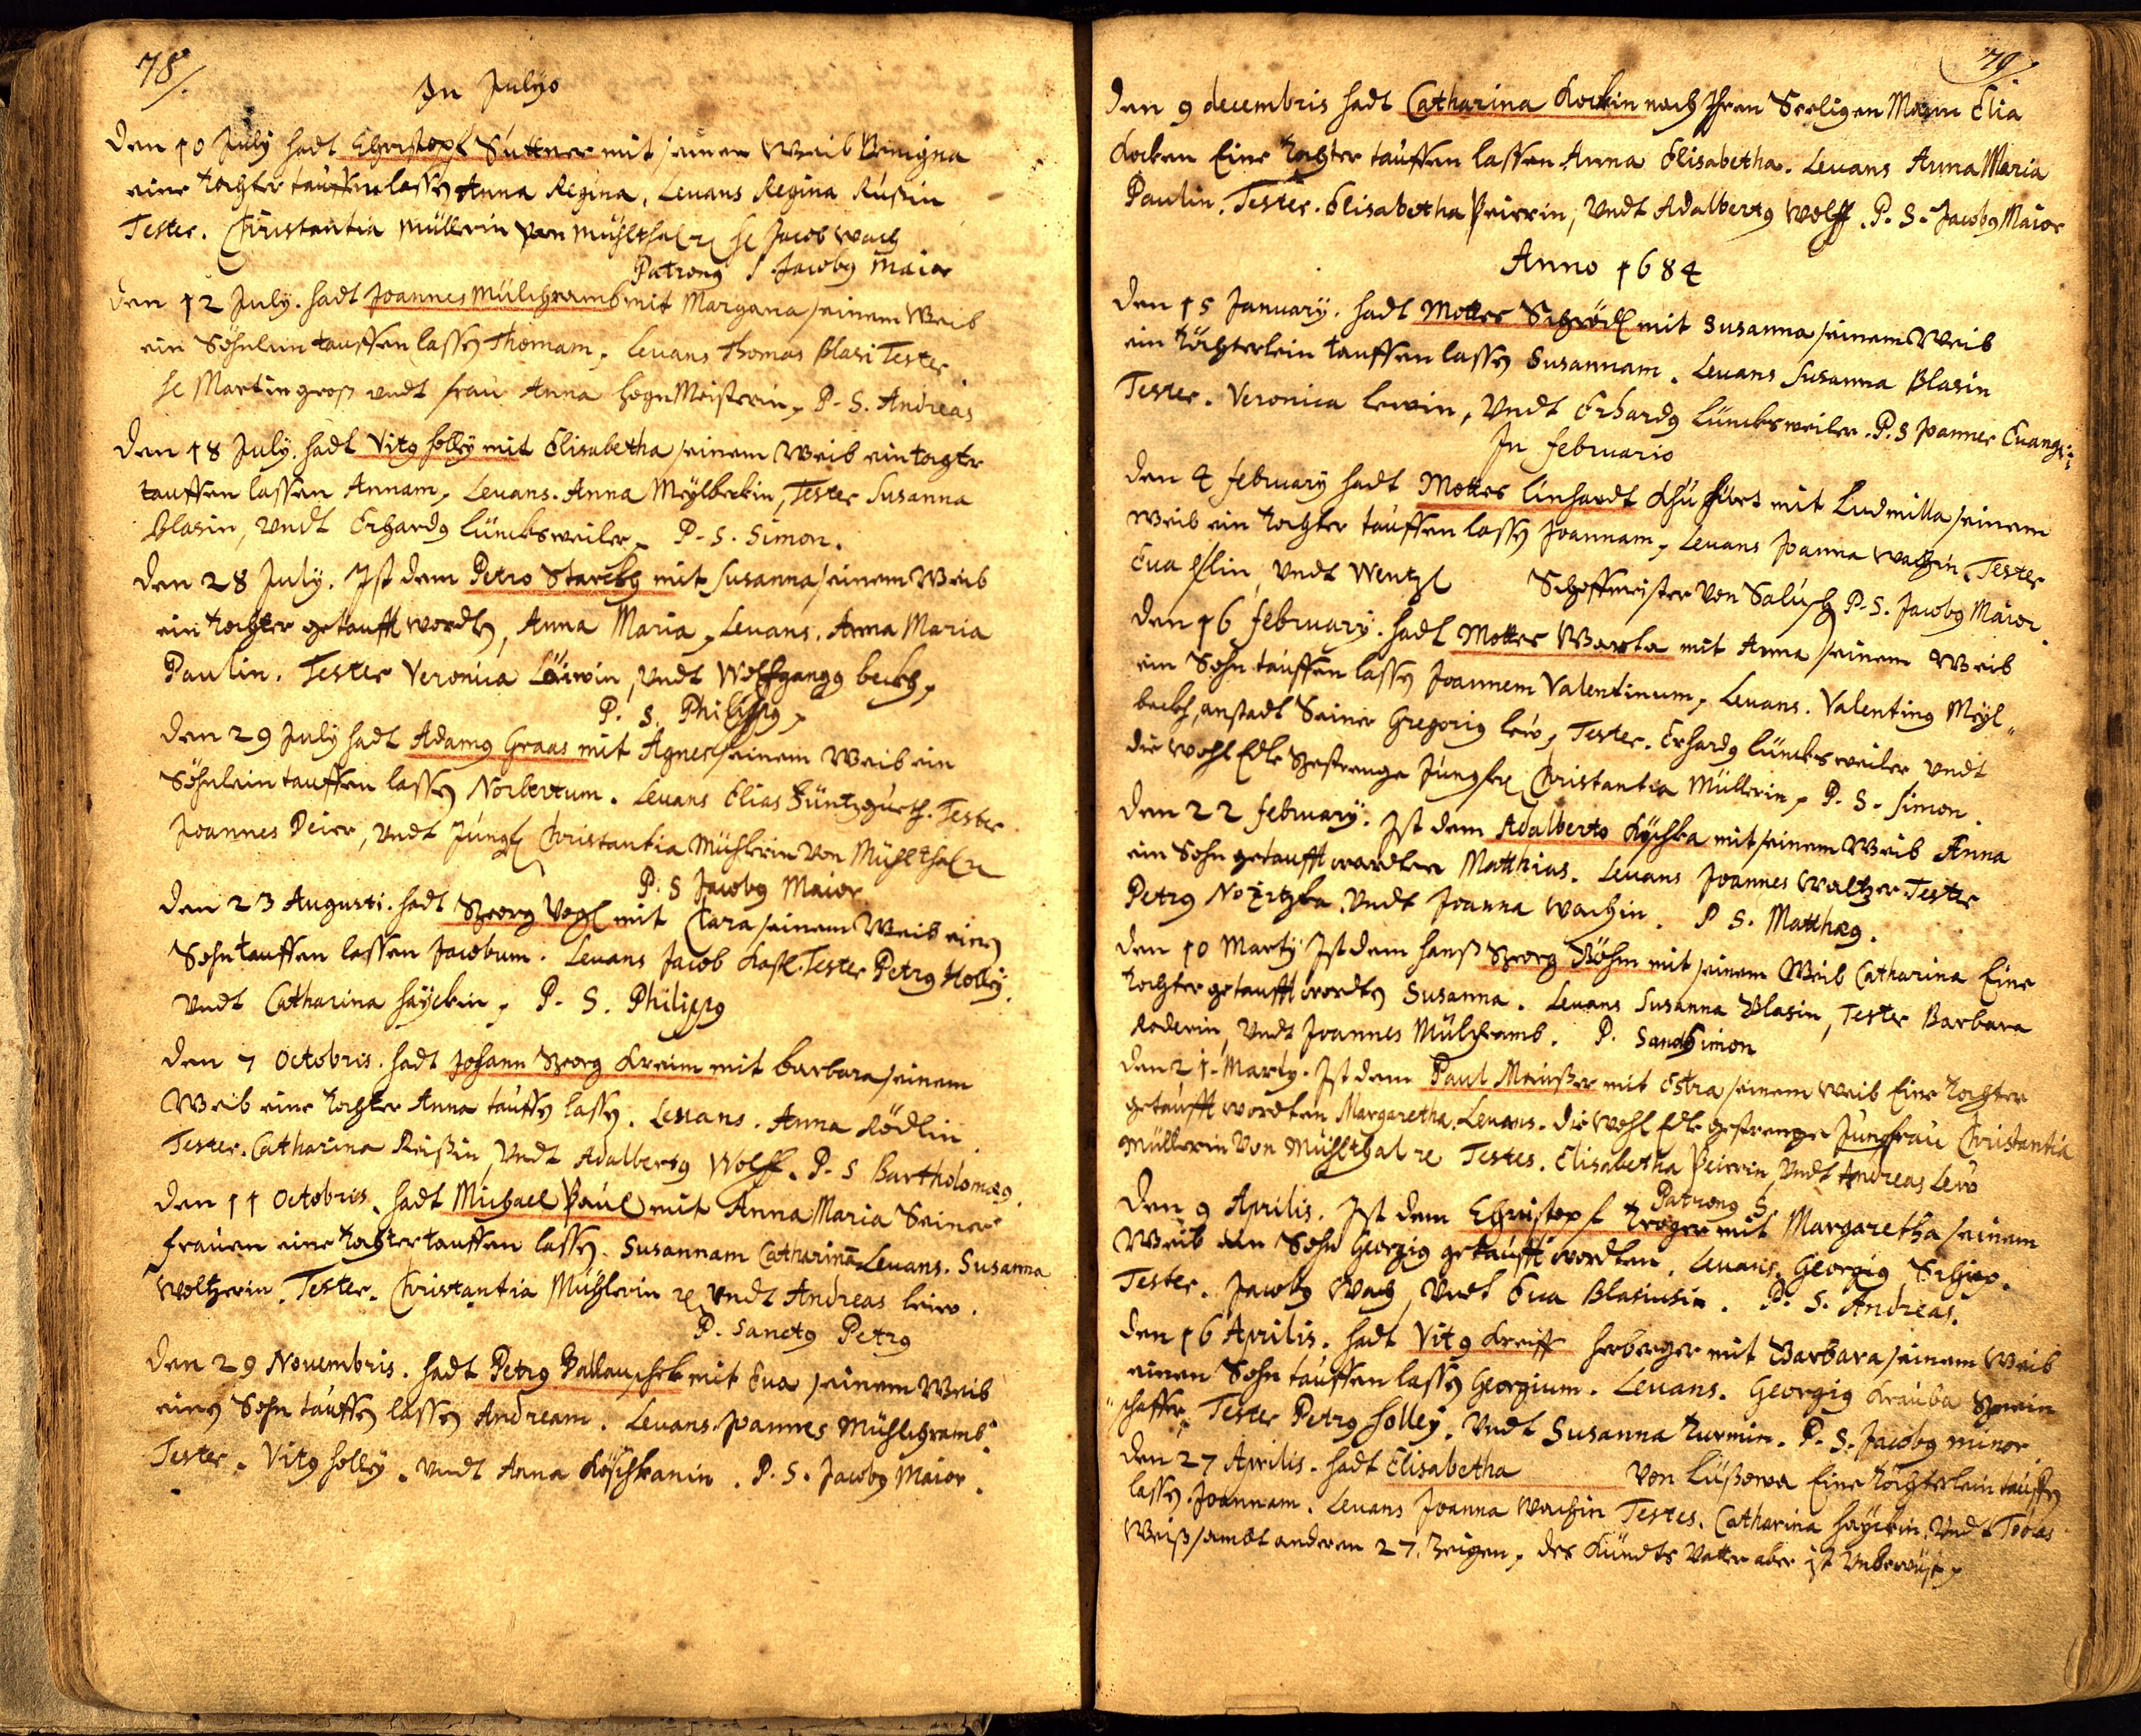 78/.
In Julyo
Den 10 July hadt Christoph Suttner mit seinen Weib Benigna
eine Tochter tauffen lassen Anna Regina, Levans Regina Rußin
Testes. Christantia Müllerin von Mühlthal ꝛc H Jacob Wach
Patrony S Jacoby Maior
Den 12 July. hadt Joannes Mülchramb mit Margana seinem Weib
ein Söhnlein tauffen lassen Thomam, Levans Thomas Blasi Testes
H Martin groß undt frau Anna hegn Meisterin, P. S. Andreas
Den 18 July. hadt Vitg holly mit Elisabetha seinem Weib ein tochter
tauffen lassen Annam, Levans. Anna Meylbeckin, Testes Susanna
Blasin, undt Erhardg Lüncksweiler, P. S. Simon.
Den 28 July. Ist dem Petro Starcky mit Susanna seinem Weib
ein Tochter getaufft worden, Anna Maria, Levans. Anna Maria
Paulin. Testes Veronica Löwin, undt Wolffgangg beckh,
P. S. Philippg,
Den 29 July hadt Adamg Graas mit Agnes seinem Weib ein
Söhnlein tauffen lassen Norbertum. Levans Elias Züntzgurth. Testes
Joannes Peier, undt Jungf Christantia Mühlerin von Mühlthal ꝛc
P. S Jacobg Maior
Den 23 Augusti. hadt Georg Vogl mit Clara seinem Weib einen
Sohn tauffen lassen Jacobum. Levans Jacob Kastl. Testes Petrg Holly.
undt Catharina hayckin, P. S. Philippg
Den 7 Octobris. hadt Johann Georg Kreim mit barbara seinem
Weib eine Tochter Anna tauffen lassen. Levans. Anna Rödlin
Testes. Catharina Reißin, undt Adalbertg Wolff. P. S Bartholomæg.
Den 11 Octobris. hadt Michael Paul mit Anna Maria Seiner
frauen eine Tochter tauffen lassen. Susannam Catharinā Levans. Susanna
Woltzerin. Testes. Christantia Mühlerin ꝛc undt Andreas leiw.
P. Sanctg Petrg
Den 29 Novembris. hadt Petrg Pallauschek mit Eva seinem Weib
einen Sohn tauffen lassen Andream. Levans. Joannes Mühlchramb.
Testes. Vitg holly. undt Anna Köschkanin. P. S. Jacobg Maior.
79/.
Den 9 decembris hadt Catharina Kockin nach Ihren Seeligen Mann Elia
Kocken Eine Tochter tauffen lassen Anna Elisabetha. Levans Anna Maria
Paulin. Testes. Elisabetha Peirrin, undt Adalbertg Wolff. P. S. Jacobg Maior
Anno 1684
Den 15 January. hadt Mottes Schrödl mit Susanna seinem Weib
ein Töchterlein tauffen lassen Susannam. Levans Susanna Blasin
Testes. Veronica lewin, undt Erhardg Lüncksweiler. P. S Joannes Evange:
In februario
Den 4 february hadt Mottes Linhardt mit Ludmilla seinem
Weib ein Tochter tauffen lassen Joannam, Levans Joanna Wachin. Testes
Eva Eslin, undt Wentzl Schoffmeister von Salusch P. S. Jacobg Maior.
Den 16 february. hadt Mottes Warta mit Anna seinem Weib
ein Sohn tauffen lassen Joannem Valentinum, Levans. Valenting Meyl"
beckh, anstadt Seiner Gregorig lew, Testes. Erhardg Lüncksweiler undt
die Wohl Edle Gestrenge Jungfer Christantia Müllerin, P. S. Simon.
Den 22 february. Ist dem Adalberto Kychka mit seinem Weib Anna
ein Sohn getaufft wordten Matthias. Levans Joannes Waltzer Testes
Petrg Nozitzka undt Joanna Wachin. P S. Matthæg.
Den 10 Marty Ist dem hanß Georg Böhm mit seinem Weib Catharina Eine
Tochter getaufft worden Susanna. Levans Susanna Blasin, Testes Barbara
Roderin, undt Joannes Mülchramb. P. Sanct Simon
Den 21. Marty. Ist dem Paul Meinßer mit Estra seinem Weib Eine Tochter
getaufft wordten Margaretha. Levans. die Wohl Edle gestrenge Jungfrau Christantia
Müllerin von Mühlthal ꝛc Testes. Elisabetha Peirrin, undt Andreas Leiw
Patrong S.
Den 9 Aprilis. Ist dem Christoph Kroger mit Margaretha seinem
Weib ein Sohn Georgig getaufft wordten. Levans. Georgig Schiep.
Testes. Jacobg Wach, undt Eva Blasiusin. P. S. Andreas.
Den 16 Aprilis. hadt Vitg Kreiff herberger mit Barbara seinem Weib
einen Sohn tauffen lassen Georgium. Levans. Georgig Krauba Gemein
"schaffer, Testes Petrg holley. undt Susanna Turmin. P. S. Jacobg minor.
Den 27 Aprilis. hadt Elisabetha von Lußowa Eine Töchterlein tauffen
lassen. Joannam. Levans Joanna Wachin Testes. Catharina hayckin. undt Tobias
Weiß sambt anderen 27. Zeigen, des Kündts Vatter aber ist Unbewust,